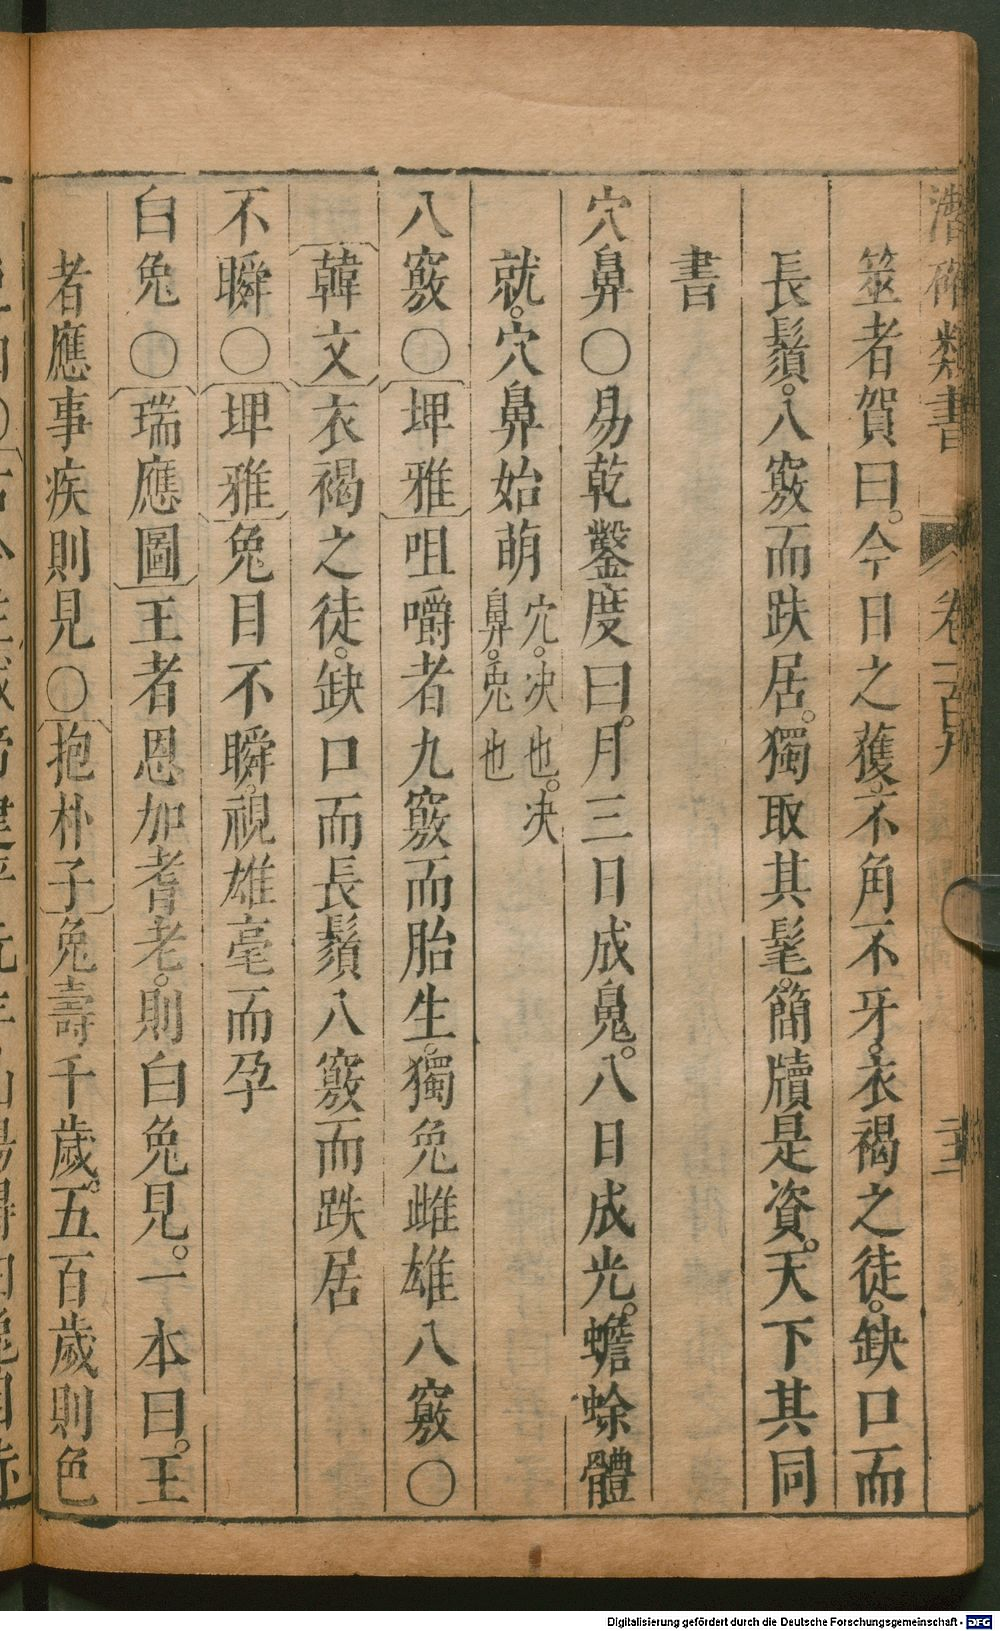 潛確類書 卷一百九 二十三
筮者賀曰。今日之獲。不角不牙。衣褐之徒。缺口而
長鬚。八竅而趺居。獨取其髦。簡牘是資。天下其同
書
穴鼻〇易乾鑿度曰。月三日成魄。八日成光。蟾蜍體
就。穴鼻始萌
穴。决也。决
鼻。兎也
八竅〇埤雅咀嚼者九竅而胎生。獨兔雌雄八竅〇
韓文衣褐之徒。缺口而長鬚八竅而趺居
不瞬〇埤雅兔目不瞬。視雄毫而孕
白兔〇瑞應圖王者恩加耆老。則白兔見。一本曰。王
者應事疾則見〇抱朴子兔壽千歲。五百歲則色
Digitalisierung gefördert durch die Deutsche Forschungsgemeinschaft - DFG